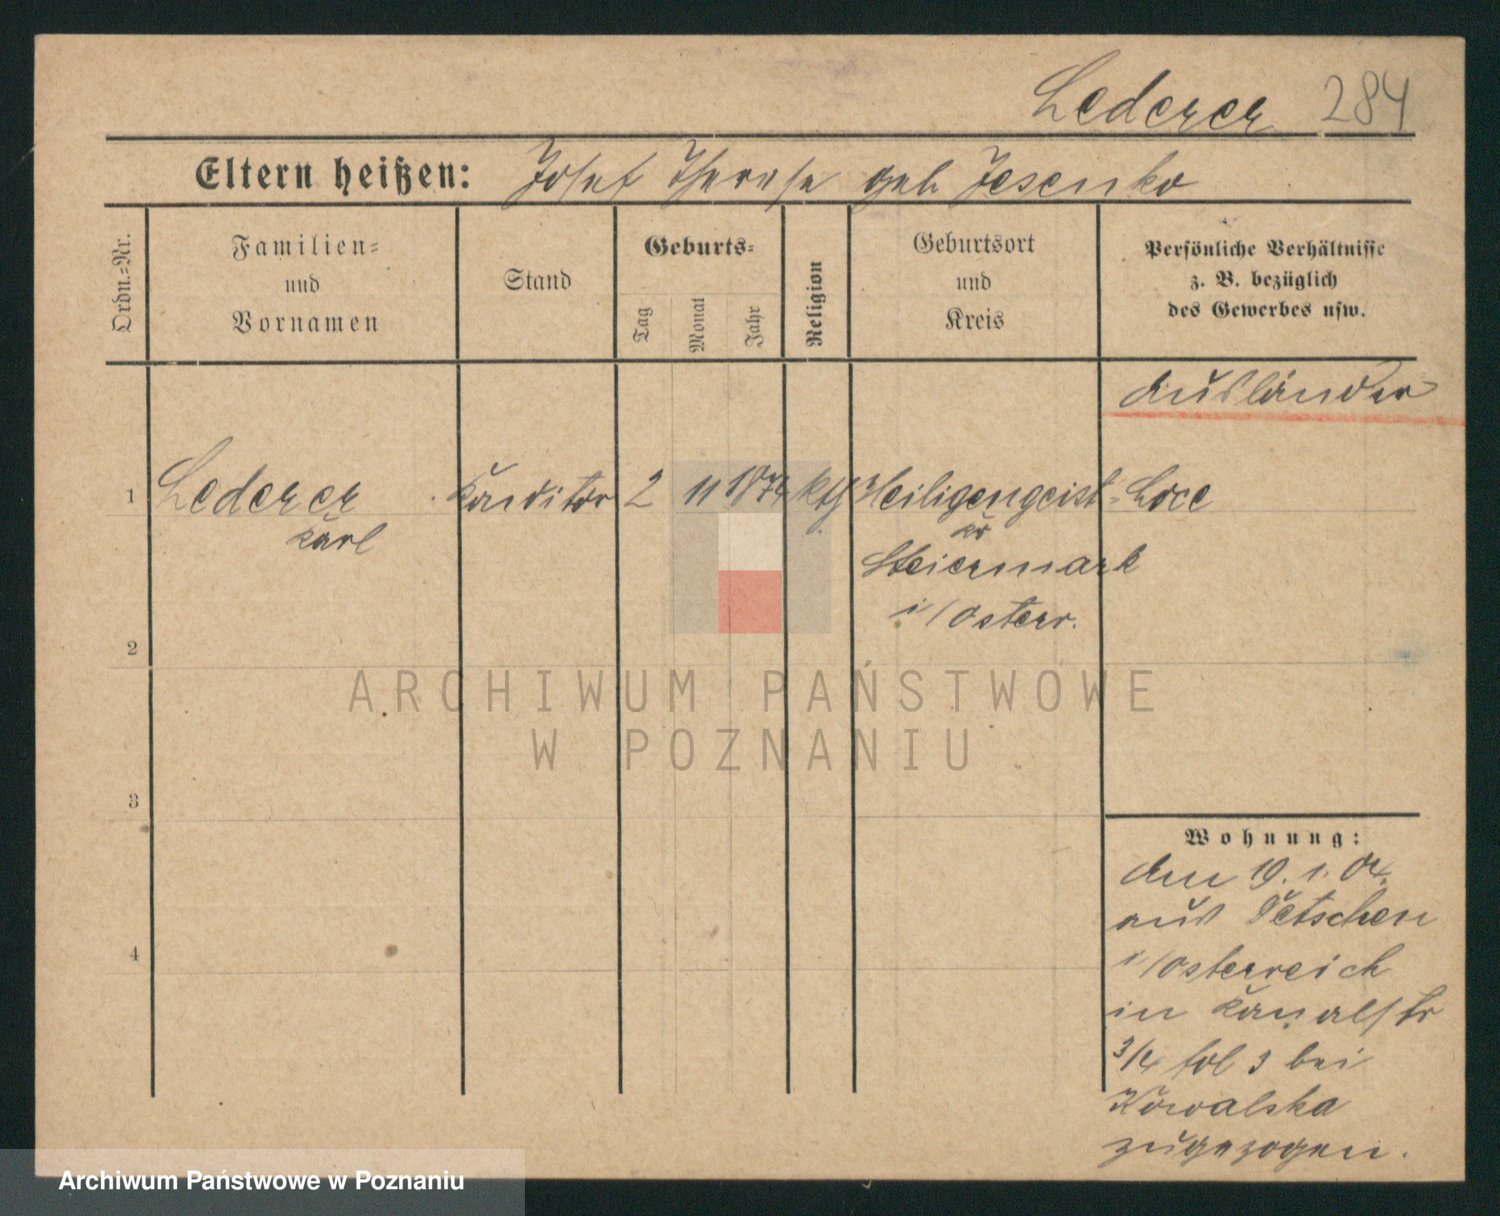 Lederer 284
Eltern heißen: Josef Therese geb Jesenko
Ordn.=Nr.
Familien=
und
Vornamen
Stand
Geburts=
Tag
Monat
Jahr
Religion
Geburtsort
und
Kreis
Persönliche Verhältnisse
z. B. bezüglich
des Gewerbes usw.
Ausländer
1 Lederer Konditor 2 11 1874 kth Heiligengeist-Loce
Karl
Kr
Steiermark
i/Österr.
2
ARCHIWUM PAŃSTWOWE
W POZNANIU
3
Wohnung:
den 19. 1. 04.
aus Tetschen
i/Österreich
in Kanalstr
3/4 fol 3 bei
Kowalska
zugezogen.
4
Archiwum Państwowe w Poznaniu